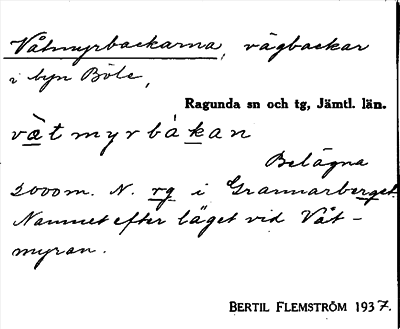 Våtmyrbackarna, vägbackar
i byn Böle,
Ragunda sn och tg, Jämtl. län.
vàtmyrbákan
Belägna
2000 m. N. rg i Grannarberget.
Namnet efter läget vid Våt-
myran.
BERTIL FLEMSTRÖM 1937.